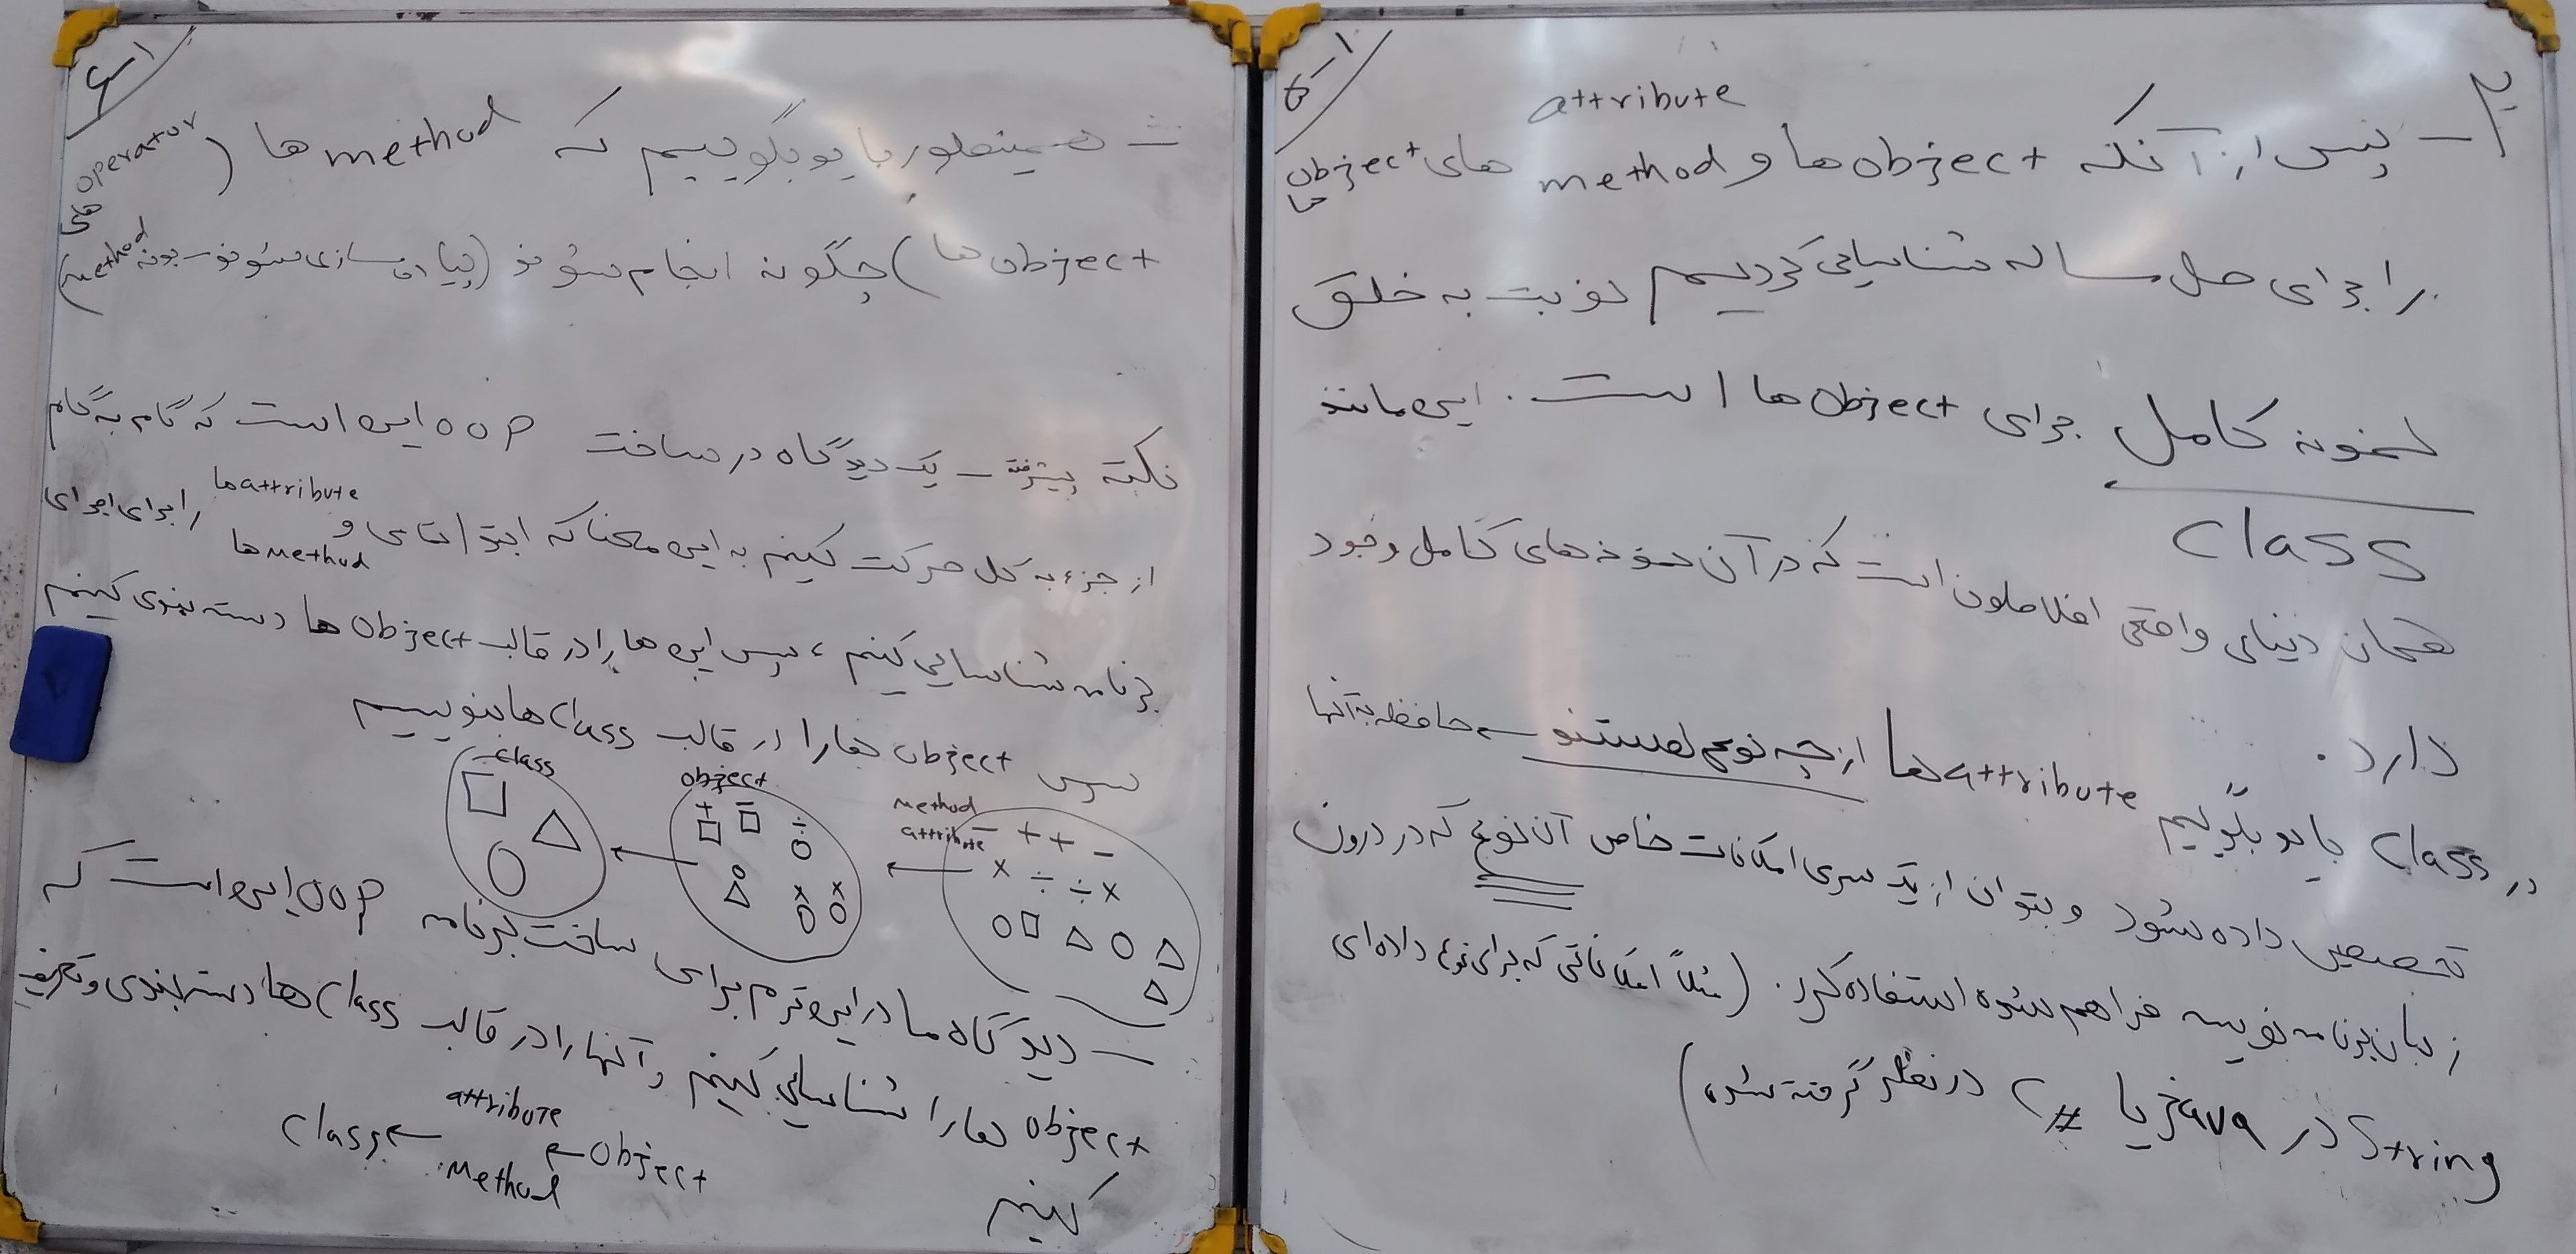 ۱-۵
۲- پس از آنکه object ها و attribute method های object ها
را برای حل مساله شناسایی کردیم نوبت به خلق
نمونه کامل برای object ها است. این مانند
class
همان دنیای واقعی افلاطون است که در آن نمونه های کامل وجود
دارد.
در class باید بگوییم attribute ها از چه نوعی هستند حافظه به آنها
تخصیص داده شود و بتوان از یک سری امکانات خاص آن نوع که در درون
زبان برنامه نویسی فراهم شده استفاده کرد. (مثلاً امکاناتی که برای نوع داده ای
String در Java یا C# در نظر گرفته شده)
۱-۶
- همینطور باید بگوییم که method ها (operator های
object ها) چگونه انجام شوند (پیاده سازی شوند - بدنه method)
نکته پیشرفته - یک دیدگاه در ساخت OOP این است که گام به گام
از جزء به کل حرکت کنیم به این معنا که ابتدا تمامی attribute ها و method ها را برای اجرای
برنامه شناسایی کنیم، سپس این ها را در قالب object ها دسته بندی کنیم
سپس object ها را در قالب class ها بنویسیم
class
object
method
attribute
- + + -
× ÷ ÷ ×
- دیدگاه ما در این ترم برای ساخت برنامه OOP این است که
object ها را شناسایی کنیم و آنها را در قالب class ها دسته بندی و تعریف
کنیم
object ← attribute method ← class